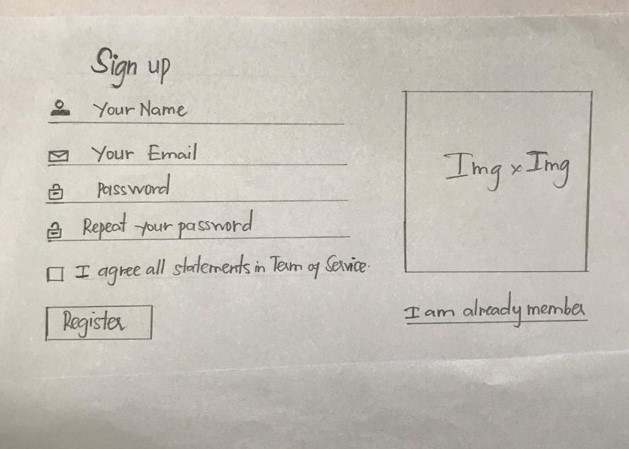 Sign up
Your Name
Your Email
Password
Repeat your password
I agree all statements in Term of Service.
Register
Img x Img
I am already member